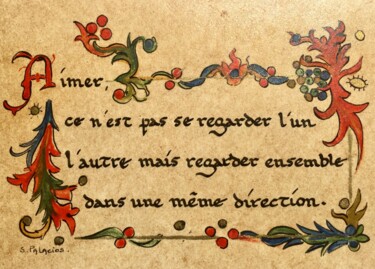 Aimer,
ce n'est pas se regarder l'un
l'autre mais regarder ensemble
dans une même direction.
S. PALACIOS.